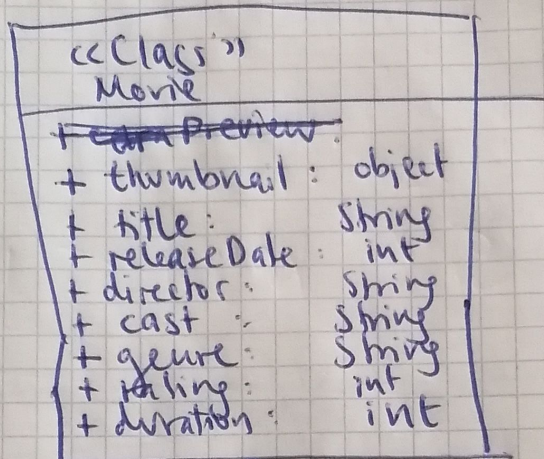 <<Class>>
Movie
+ Preview:
+ thumbnail: object
+ title: String
+ releaseDate: int
+ director: String
+ cast: String
+ genre: String
+ rating: int
+ duration: int